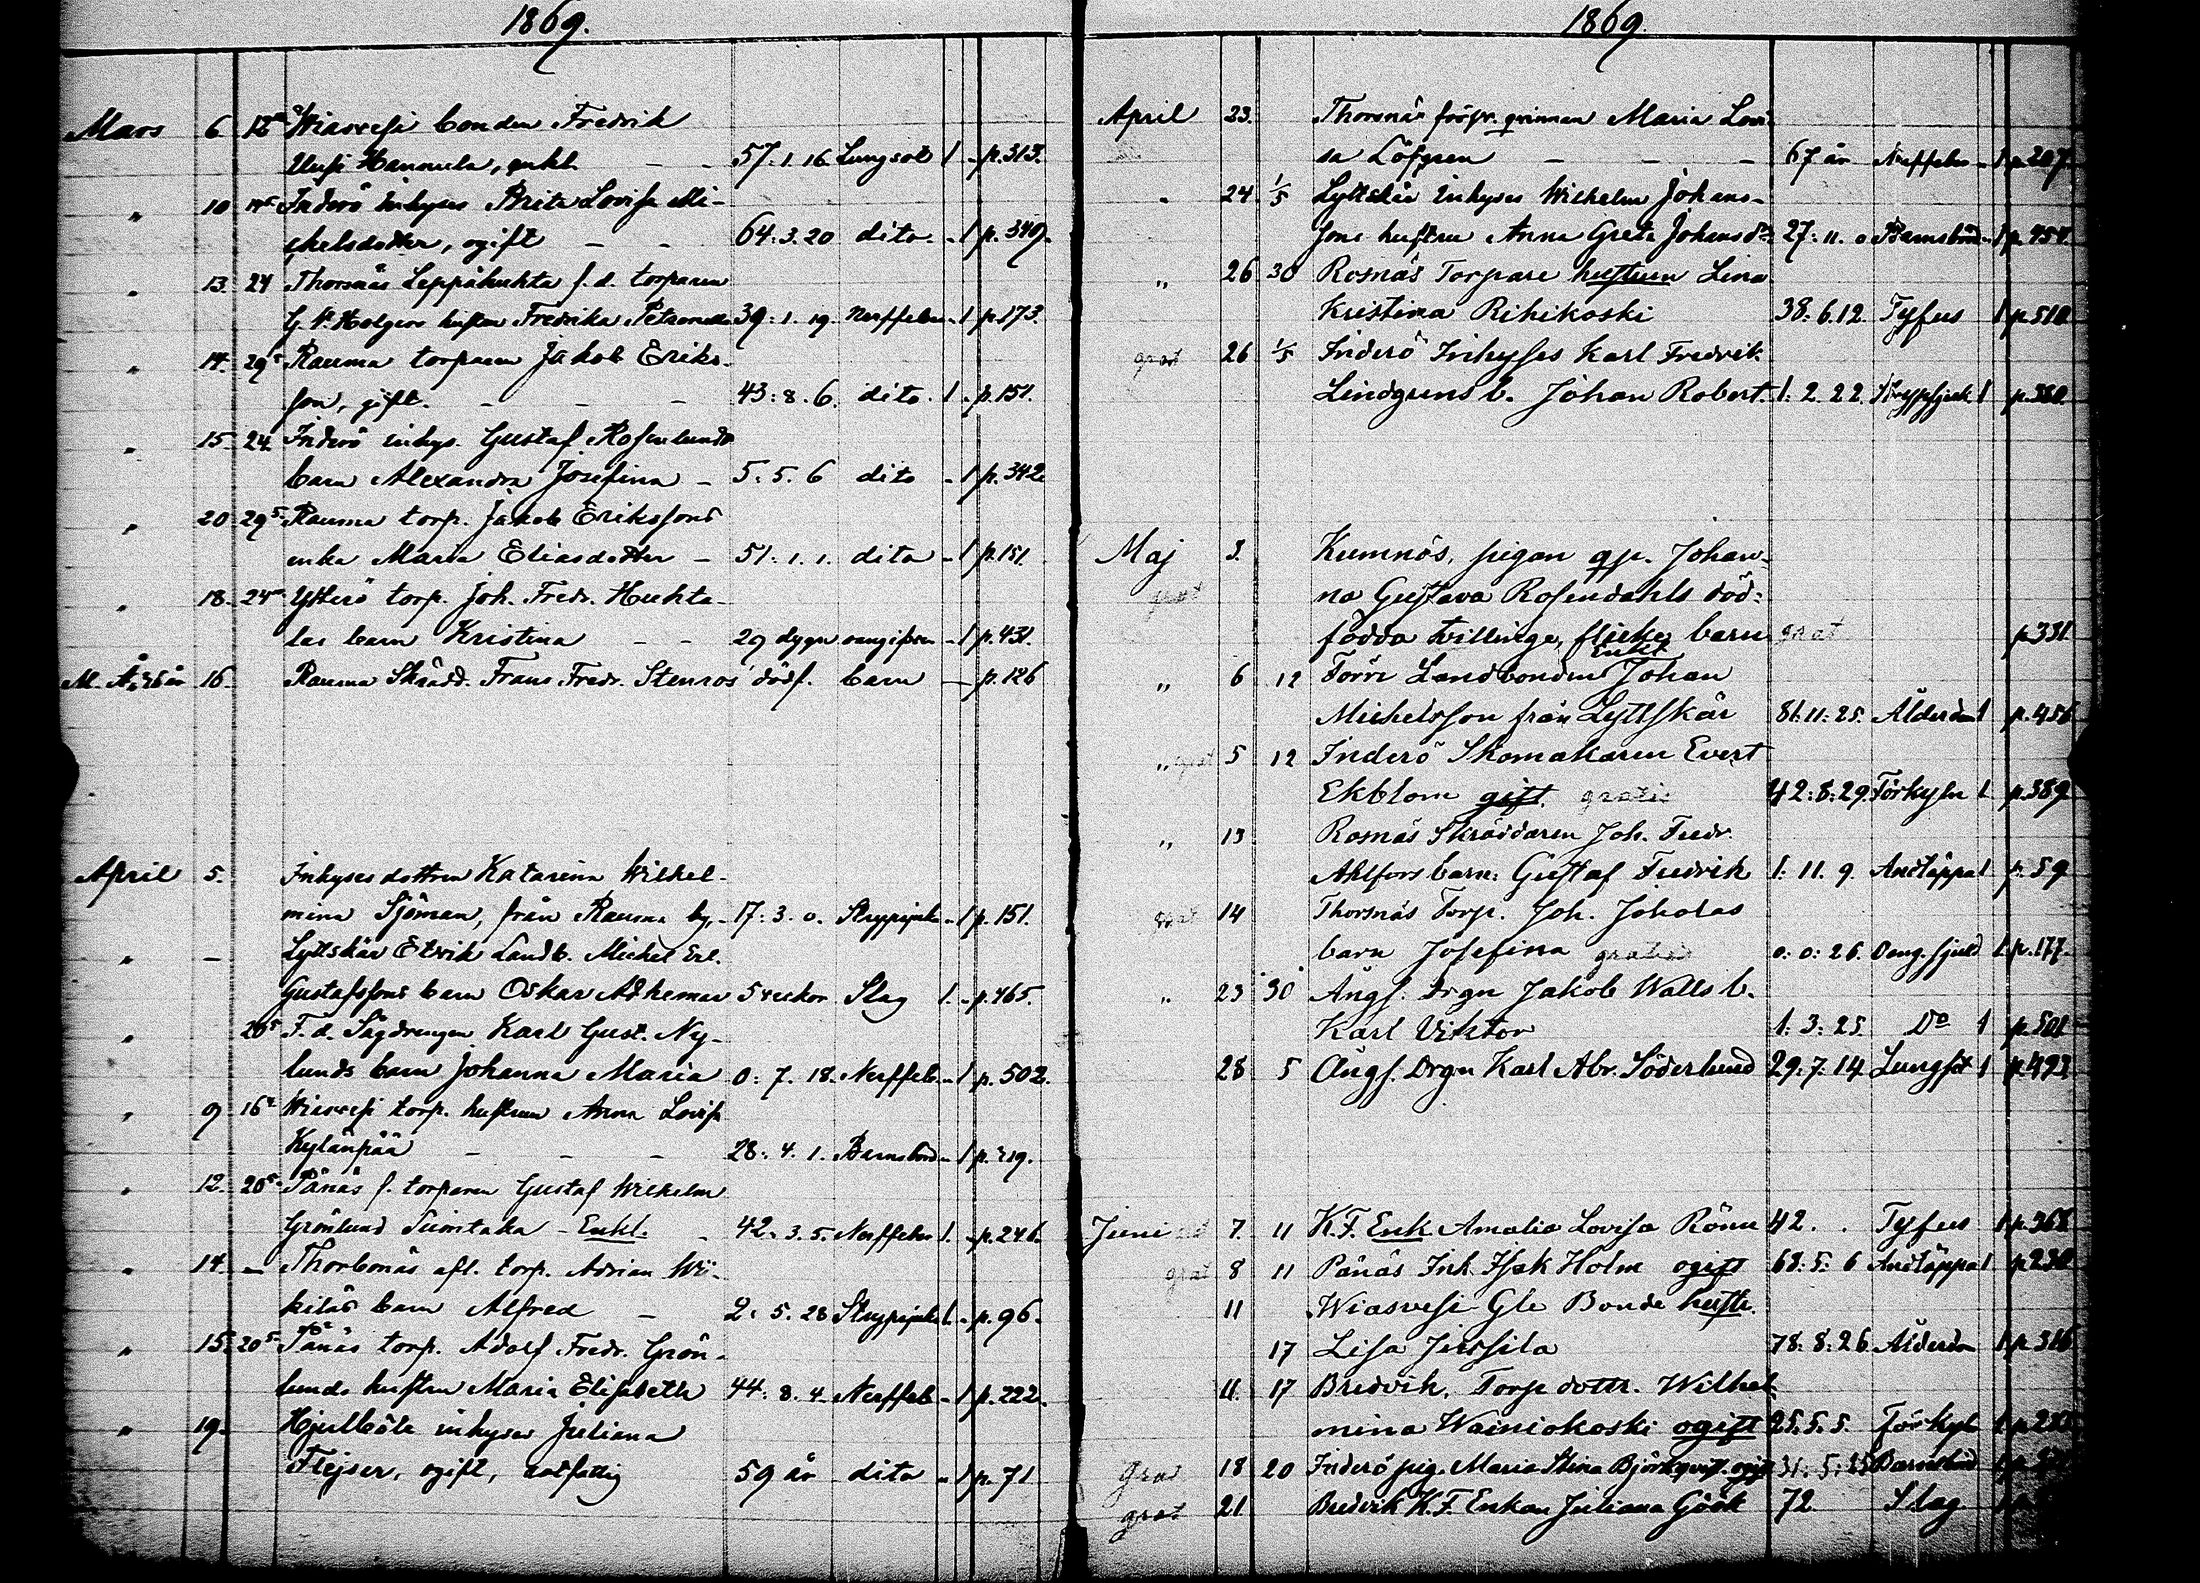 1869.
Mars 6 12 Wiasvesi bonden Fredrik
Uusi Hannula, enkl. — — 57. 1. 16 Lungsot 1 - p. 313.
" 10 Inderö inhyses Brita Lovisa Mi-
chelsdotter, ogift — — 64. 3. 20 dito. - 1 p. 349.
" 13. 24 Thorsnäs Leppähuhta f.d. torparen
Holgers hustru Fredrika Petronella 39. 1. 19. Nerffeber - 1 p. 173.
" 14. 29 5 Rauma torparen Jakob Eriks-
son, gift. — — — 43: 8. 6. dito. 1 - p. 151.
" 15 24. Inderö inhys. Gustaf Rosenlunds
barn Alexandra Josefina — 5. 5. 6 dito - 1 p. 342.
" 20 29 5 Rauma torp. Jakob Erikssons
enka Maria Eliasdotter — 51. 1. 1. dito - 1 p. 151.
" 18. 24 Ytterö torp. Joh. Fredr. Huhta-
las barn Kristina — — 29 dygn - 1 p. 431.
16. Rauma Skrädd. Frans Fredr. Stenros' dödf. barn — p. 126
April 5. Inhysesdottren Katarina Wilhel-
mina Sjöman, från Rauma by, - 17. 3. 0. Strypsjuka - 1 p. 151.
" — Lyttskär Etvik Landb. Michel Erl.
Gustafssons barn Oskar Adhemar 5 veckor Slag 1. - p. 465.
" 20 5 F.d. Sågdrengen Karl Gust. Ny-
lunds barn Johanna Maria 0. 7. 18. Nerffeb. - 1 p. 502.
" 9 16 Wiasvesi torp. hustrun Anna Lovisa
Kylänpää — — — 28. 4. 1. Barnsbörd - 1 p. 319.
" 12. 20 5 Pånäs f. torparen Gustaf Wilhelm
Grönlund — Enkl. - 42. 3. 5. Nerffeber 1. - p. 246.
" 14. — Thorbonäs afl. torp. Adrian Wii-
kiläs barn Alfred — 2. 5. 28 Strypsjuka 1. - p. 96.
" 15. 20 5 Pånäs torp. Adolf Fredr. Grön-
lunds hustru Maria Elisabeth 44. 8. 4. Nerffeb. - 1 p. 222.
" 19. Hjulböle inhyses Juliana
Flejser, ogift, 59 år dito - 1 p. 71
1869.
April 23. Thorsnäs förpr. qvinnan Maria Lovi-
sa Löfgren — — — 67 år Nerffeber - 1 p. 207
" 24 1/5 Lyttskär inhyses Wilhelm Johans-
sons hustru Anna Greta Johansdr 27. 11. 0 Barnsbörd - 1 p. 454.
" 26 30 Rosnäs Torpare hustrun Lina
Kristina Rihikoski 38. 6. 12. Tyfus 1 p. 510
grat 26 1/5 Inderö Inhyses Karl Fredrik
Lindgrens b. Johan Robert. 1. 2. 22. Strypsjuk. 1 p. 380.
Maj 3. Kumnäs, pigan qp. Johan-
na Gustava Rosendahls död-
födda tvillinge, flicke barn grat p 331
" 6 12 Förre Landbonden Enkl Johan
Michelsson från Lyttskär 81. 11. 25. Ålderdom 1 p. 456
" grat 5 12 Inderö Skomakaren Evert
Ekblom gift. gratis 42. 8. 29. Förkyln 1 p. 389.
" 13 Rosnäs Skräddaren Joh. Fredr.
Ahlfors barn: Gustaf Fredrik 1. 11. 9. Andtäppa 1 p. 59
grat 14 Thorsnäs Torp. Joh. Jokolas
barn Josefina gratis 0. 0. 26. Oang. sjukd 1. p. 177.
" 23 30 Ängf. Drgn Jakob Walls b.
Karl Viktor 1. 3. 25. Do 1 p. 501
28 5 Ängf. Drgn Karl Abr. Söderlund 29. 7. 14 Lungsot 1 p. 493
Juni 7 11 K.F. Enk. Amalia Lovisa Rönn 42. . Tyfus 1 p. 368
grat 8 11 Pånäs Inh. Isak Holm ogift 68. 5. 6 Andtäppa 1 p. 230
11 Wiasvesi Gle Bonde hustr.
17 Lisa Jussila 78. 8. 26 Ålderdom 1 p. 316
11. 17 Bredvik. Torp dottr. Wilhel-
mina Wainiokoski ogift 25. 5. 5. Förkyl 1 p.
Grat 18 20 Inderö pig. Maria Stina Björkqvist ogift 31. 5. 25 Barnsbörd 1 p.
grat 21 Bredvik K.F. Enkan Juliana Göök 72 Slag